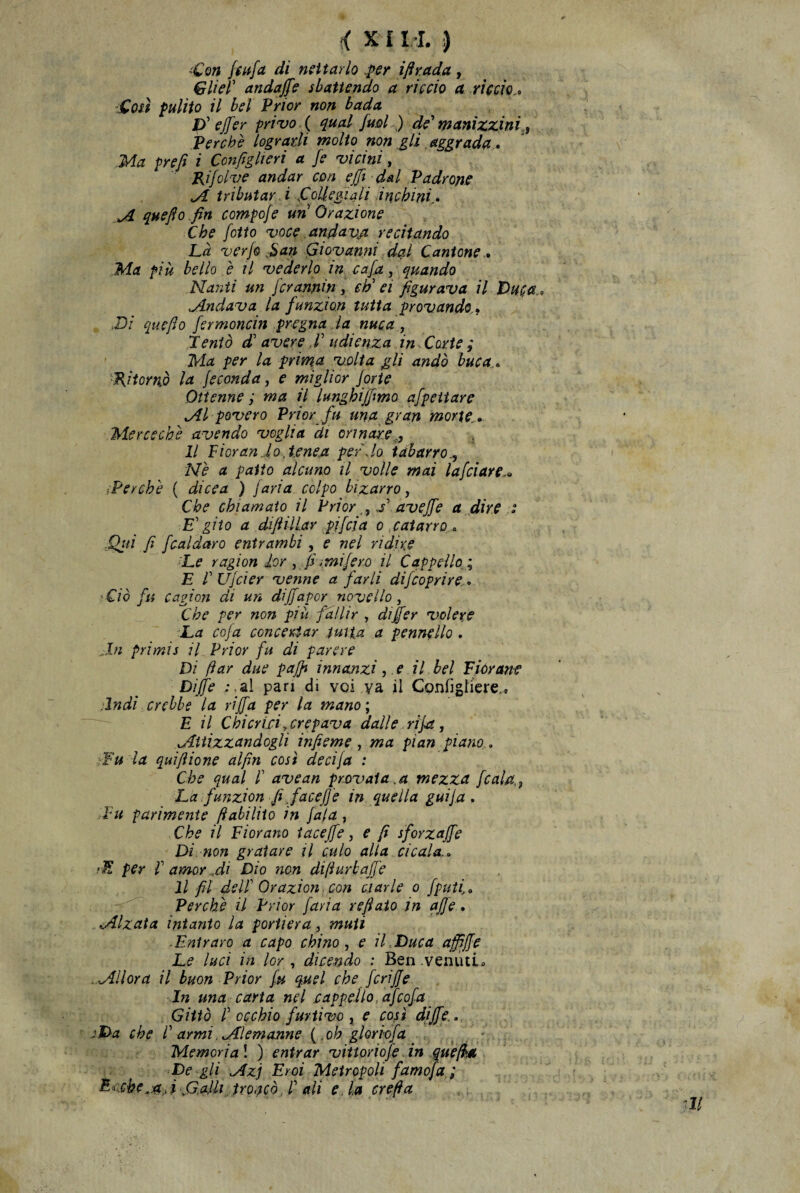 ( XIII. )
Con ſcuſa di nettarlo per iſtrada ,
Gliel' andaſſe sbattendo a riccio a riccio.
Così pulito il bel Prior non bada
D' eſſer privo ( qual ſuol ) de' manizzini ,
Perchè lograrli molto non gli aggrada .
Ma preſi i Conſiglieri a ſe vicini ,
Riſolve andar con eſſi dal Padrone
A tributar i Collegiali inchini .
A queſto fin compoſe un' Orazione
Che ſotto voce andava recitando
Là verſo San Giovanni dal Cantone .
Ma più bello è il vederlo in caſa , quando
Nanti un ſcrannin , ch' ei figurava il Duca .
Andava la funzion tutta provando ,
Di queſto ſermoncin pregna la nuca ,
Tentò d' avere l' udienza in Corte ;
Ma per la prima volta gli andò buca .
Ritornò la ſeconda , e miglior ſorte
Ottenne ; ma il lunghiſſimo aſpettare
Al povero Prior fu una gran morte .
Merceechè avendo voglia di orinare ,
Il Fioran lo tenea per lo tabarro ,
Nè a patto alcuno il volle mai laſciare .
Perchè ( dicea ) ſaria colpo bizarro ,
Che chiamato il Prior , s' aveſſe a dire :
E' gito a diſtillar piſcia o catarro .
Qui ſi ſcaldaro entrambi , e nel ridire
Le ragion lor , ſi miſero il Cappello ;
E l' Uſcier venne a farli diſcoprire .
Ciò fu cagion di un diſſapor novello ,
Che per non più fallir , diſſer volere
La coſa concertar tutta a pennello .
In primis il Prior fu di parere
Di ſtar due paſſi innanzi , e il bel Fiorane
Diſſe : al pari di voi va il Conſigliere .
Indi crebbe la riſſa per la mano ;
E il Chicrici crepava dalle riſa ,
Attizzandogli inſieme , ma pian piano .
Fu la quiſtione alfin così deciſa :
Che qual l' avean provata a mezza ſcala ,
La funzion ſi faceſſe in quella guiſa .
Fu parimente ſtabilito in ſala ,
Che il Fiorano taceſſe , e ſi sforzaſſe
Di non gratare il culo alla cicala .
E per l' amor di Dio non diſturbaſſe
Il fil dell' Orazion con ciarle o ſputi .
Perchè il Prior ſaria reſtato in aſſe .
Alzata intanto la portiera , muti
Entraro a capo chino , e il Duca affiſſe
Le luci in lor , dicendo : Ben venuti .
Allora il buon Prior ſu quel che ſcriſſe
In una carta nel cappello aſcoſa
Gittò l' occhio furtivo , e così diſſe .
Da che l' armi Alemanne ( oh glorioſa
Memoria ! ) entrar vittorioſe in queſta
De gli Azj Eroi Metropoli famoſa ;
E che a i Galli troncò l' ali e la creſta
Il